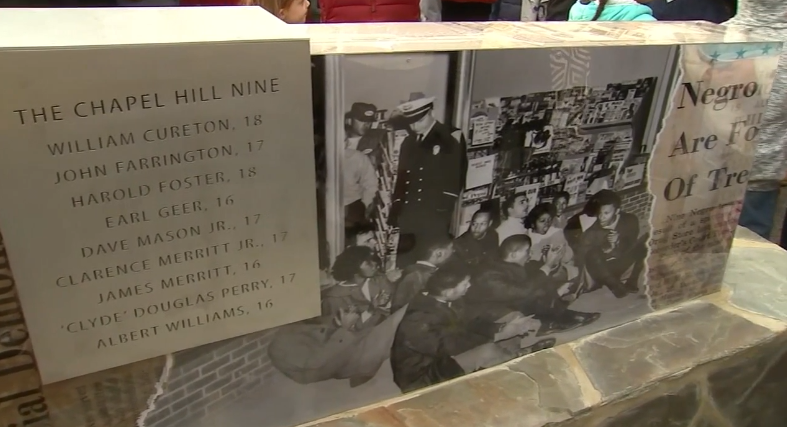 THE CHAPEL HILL NINE
WILLIAM CURETON, 18
JOHN FARRINGTON, 17
HAROLD FOSTER, 18
EARL GEER, 16
DAVE MASON JR., 17
CLARENCE MERRITT JR., 17
JAMES MERRITT, 16
'CLYDE' DOUGLAS PERRY, 17
ALBERT WILLIAMS, 16
Negro
Are Fo
Of Tre